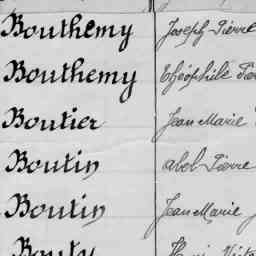 Bouthemy Joseph Pierre
Bouthemy Théophile
Boutier Jean Marie
Boutin Abel Pierre
Boutin Jean Marie
Bouty